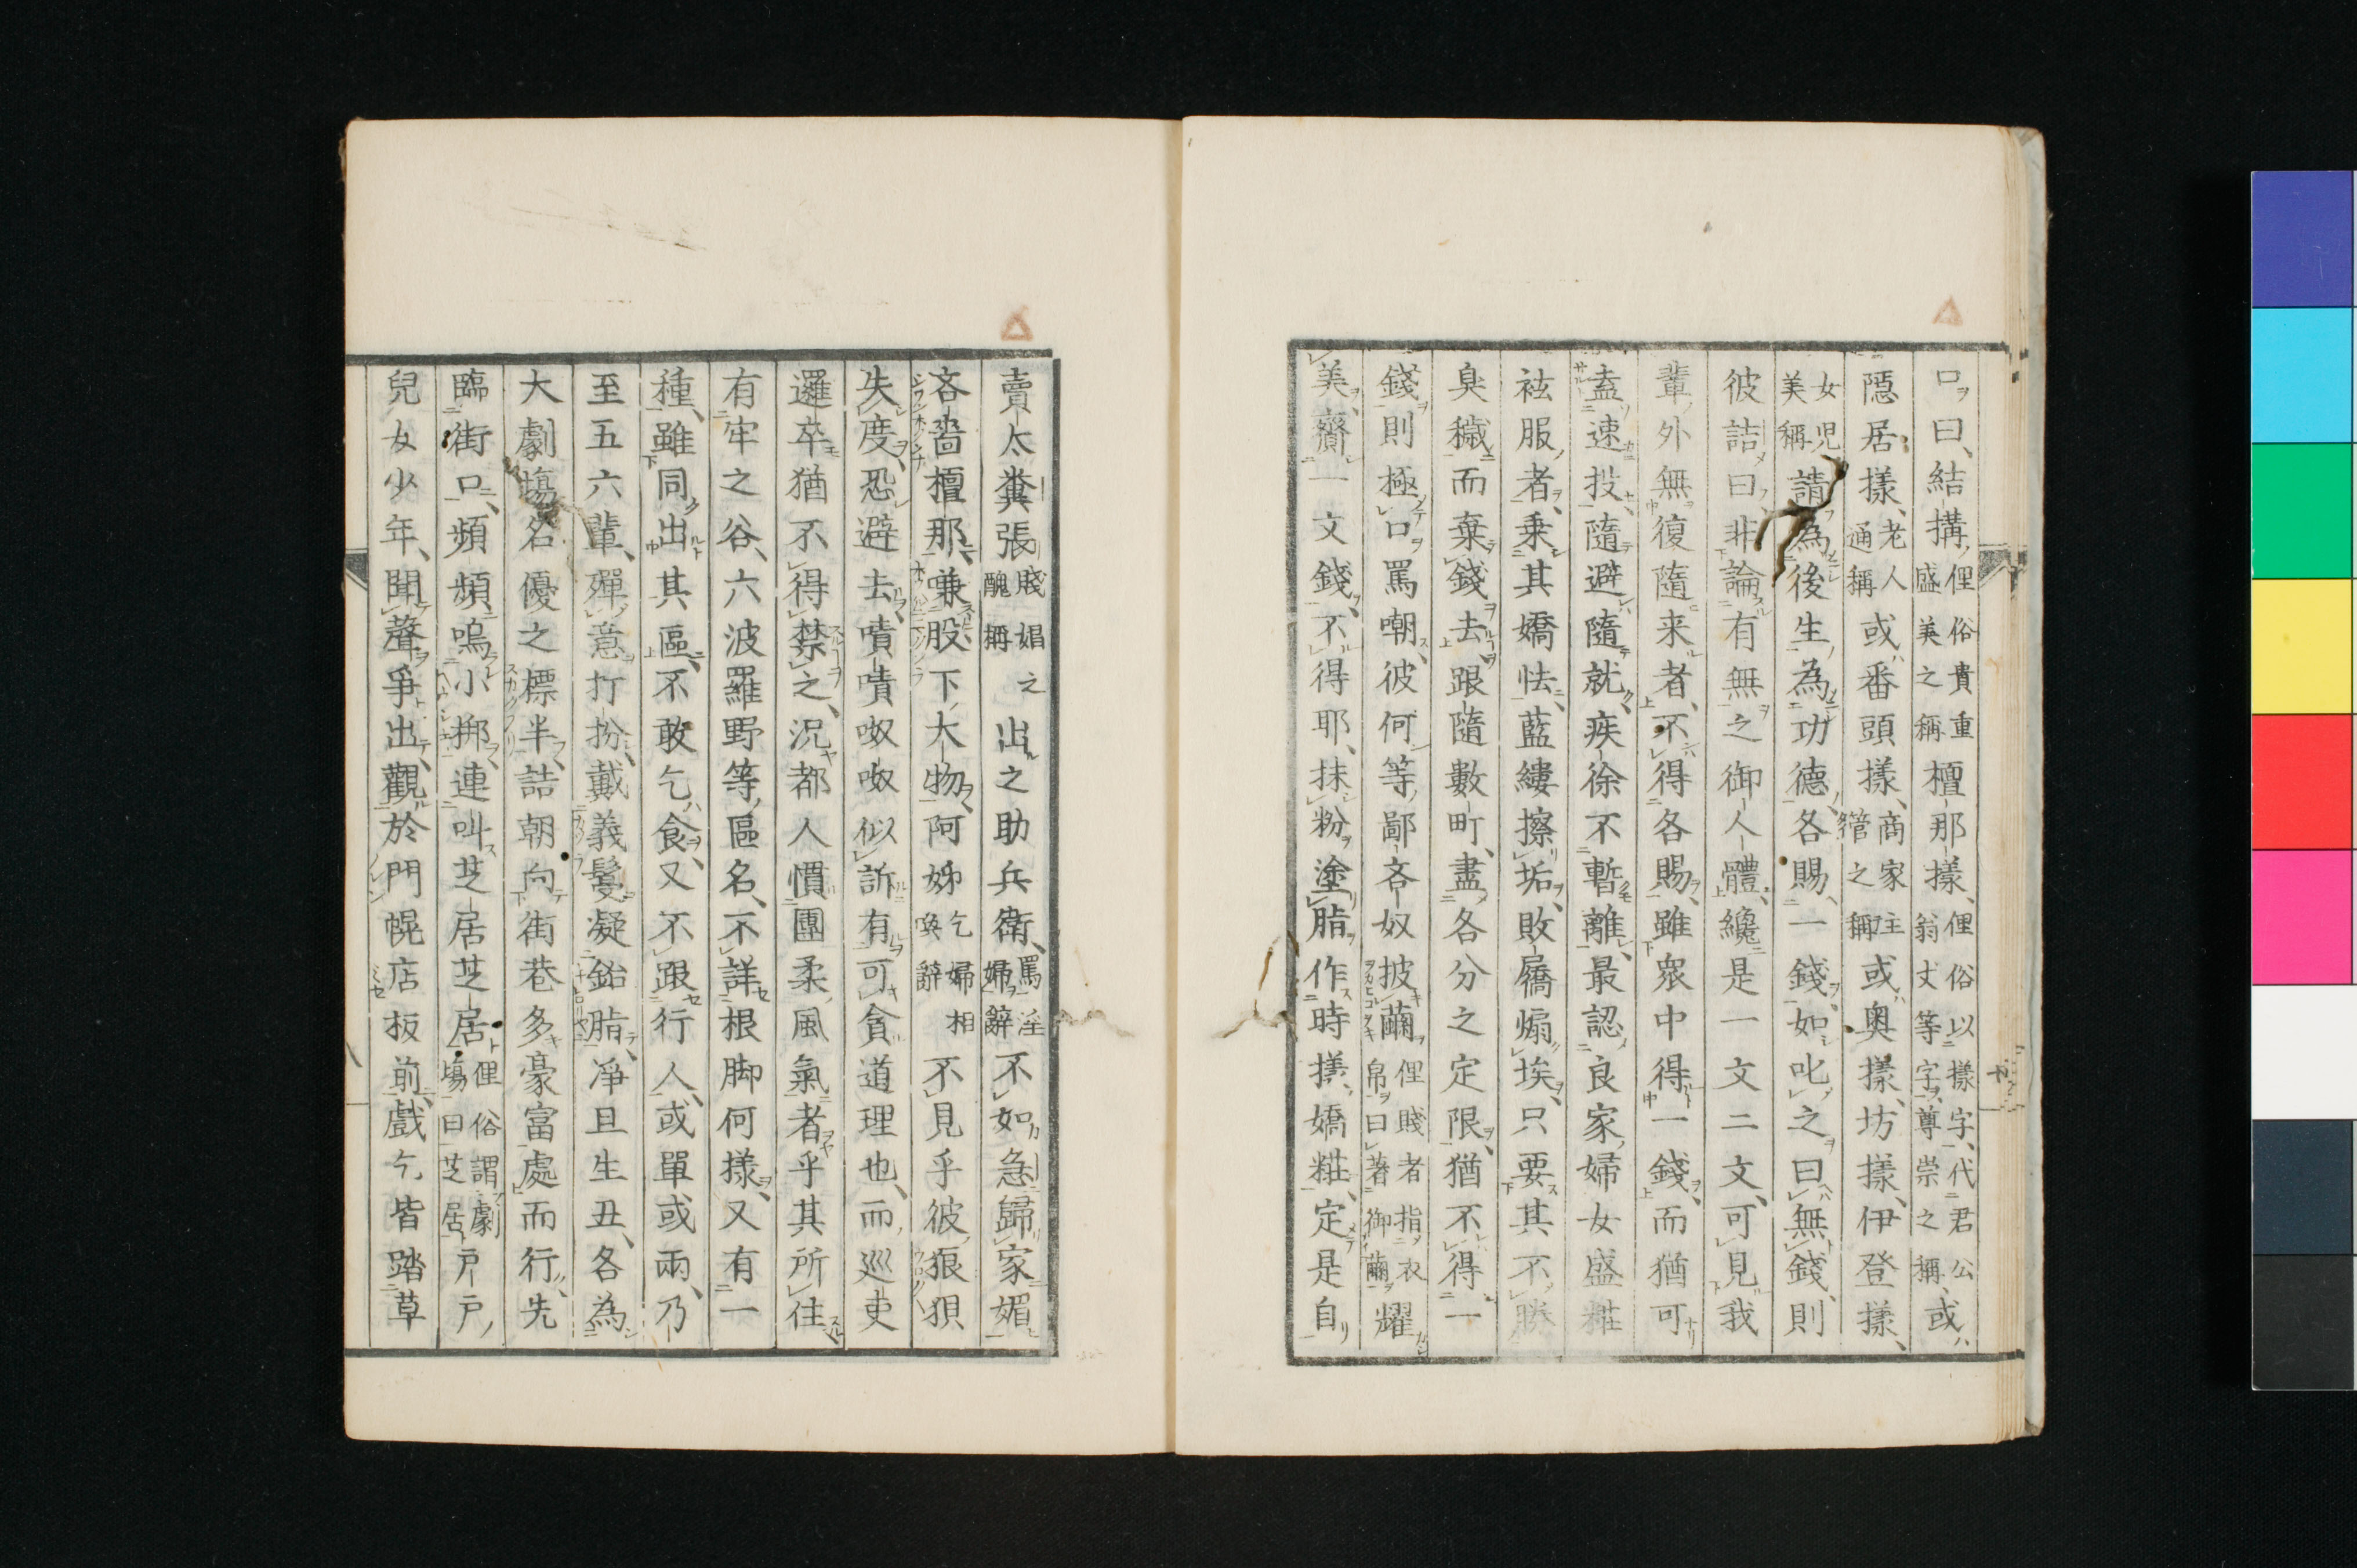 口曰、結搆、俚俗貴重盛美之稱檀那樣、俚俗以樣字、代君公翁丈等字、尊崇之稱、或
隱居樣、老人通稱或番頭樣、商家主管之稱或奥樣、坊樣、伊登樣、
女児美稱請為後生、為功德、各賜一錢、如叱之曰、無錢、則
彼詰曰、非論有無之御人體、纔是一文二文、可見我
輩外無復隨来者、不得各賜、雖衆中得一錢、而猶可
盍速投、隨避隨就、疾徐不暫離、最認良家婦女盛粧
袨服者、乗其嬌怯、藍縷擦垢、敗屩煽埃、只要其不勝
臭穢而棄錢去、跟隨數町、盡各分之定限、猶不得一
錢則極口罵嘲、彼何等鄙吝奴披繭俚賤者指衣帛曰著御繭耀
美齎一文錢、不得耶、抹粉塗脂作時樣、嬌粧、定是自
賣太糞張賤娼之醜稱出之助兵衛、罵淫婦辭不如急歸家媚
吝嗇檀那、嗛股下、大物、阿姊乞婦相喚辭不見乎彼狼狽
失度、恐避去、嘖嘖呶呶似訴有可貪道理也、而巡吏
邏卒猶不得禁之、況都人慣團柔風氣者乎其所住
有牢之谷、六波羅野等、區名、不詳根脚何樣、又有一
種、雖同出其區、不敢乞食、又不跟行人、或單或兩、乃
至五六輩、殫意打扮、戴義鬘凝鉛脂、淨且生丑、各為
大劇塲名優之標半、詰朝向街巷多豪富處而行、先
臨街口、頻頻鳴小揶、連叫芝居芝居俚俗謂劇塲曰芝居戸戸
兒女少年、聞聲爭出觀於門幌店板前、戲乞皆踏草